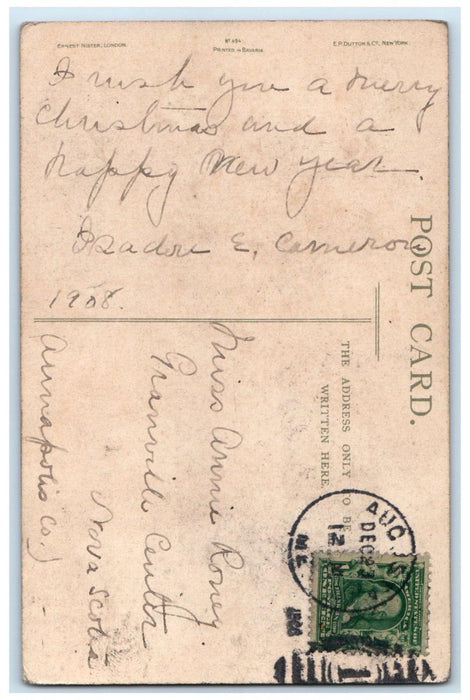 ERNEST NISTER, LONDON.
Nº 494
PRINTED IN BAVARIA
E.P. DUTTON & Cº, NEW YORK.
I wish you a merry
Christmas and a
happy New year.
Isadore E. Cameron
1908.
POST CARD.
THE ADDRESS ONLY TO BE
WRITTEN HERE.
Miss Annie Roney
Granville Center
Nova Scotia
Annapolis Co.)
AUG
DEC 23
12 M
ME